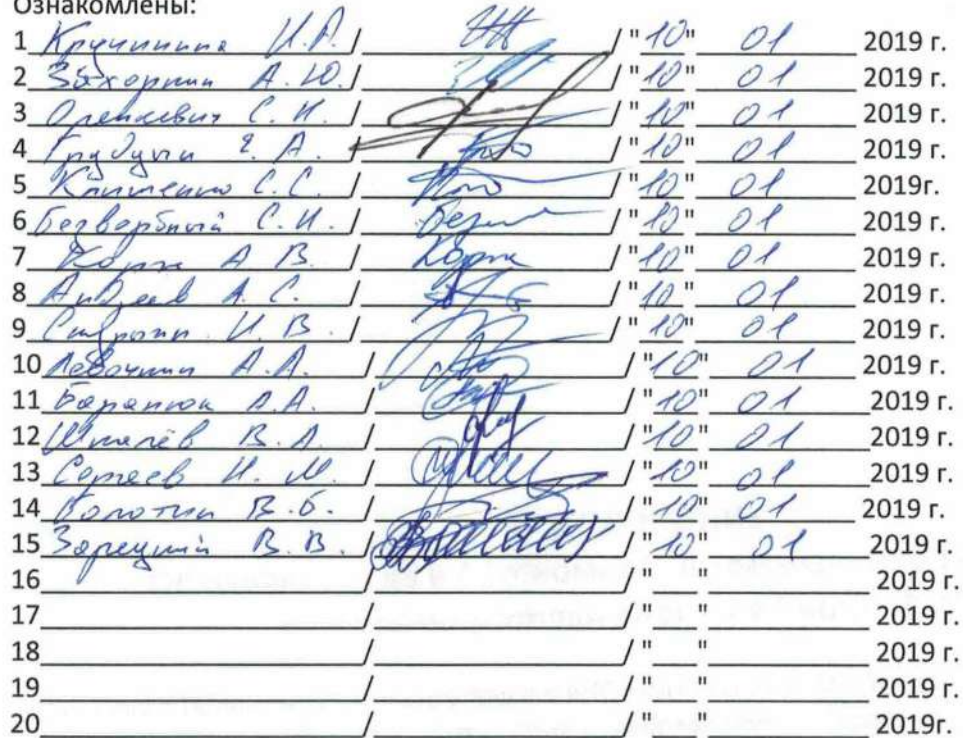 Ознакомлены:
1 Кручинина И.А. / / "10" 01 2019 г.
2 Захоркин А.Ю. / / "10" 01 2019 г.
3 С. И. / / "10" 01 2019 г.
4 Е. А. / / "10" 01 2019 г.
5 Клименко С.С. / / "10" 01 2019г.
6 Безвербный С.И. / Безв / "10" 01 2019 г.
7 Корж А В. / Корж / "10" 01 2019 г.
8 Андреев А.С. / / "10" 01 2019 г.
9 И.В. / / "10" 01 2019 г.
10 Левочкин А.А. / / "10" 01 2019 г.
11 Баранюк А.А. / / "10" 01 2019 г.
12 Шмелёв В.А. / / "10" 01 2019 г.
13 Сергеев И.М. / / "10" 01 2019 г.
14 Болотин В.Б. / / "10" 01 2019 г.
15 Зарецкий В.В. / / "10" 01 2019 г.
16 / / " " 2019 г.
17 / / " " 2019 г.
18 / / " " 2019 г.
19 / / " " 2019 г.
20 / / " " 2019г.